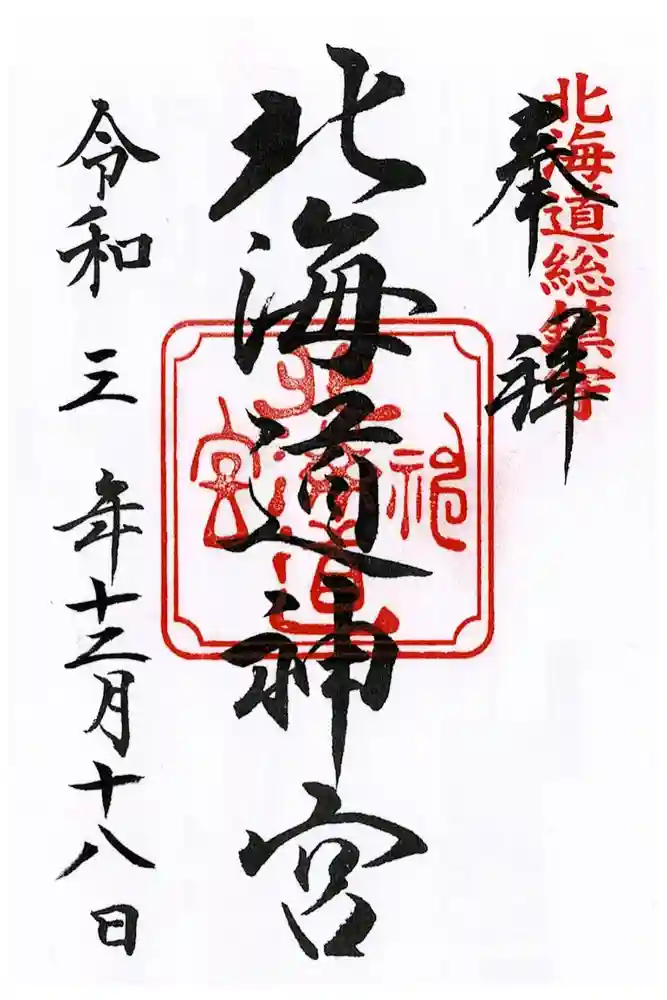 北海道総鎮守
奉拝
北海道神宮
北海道神宮
令和三年十二月十八日